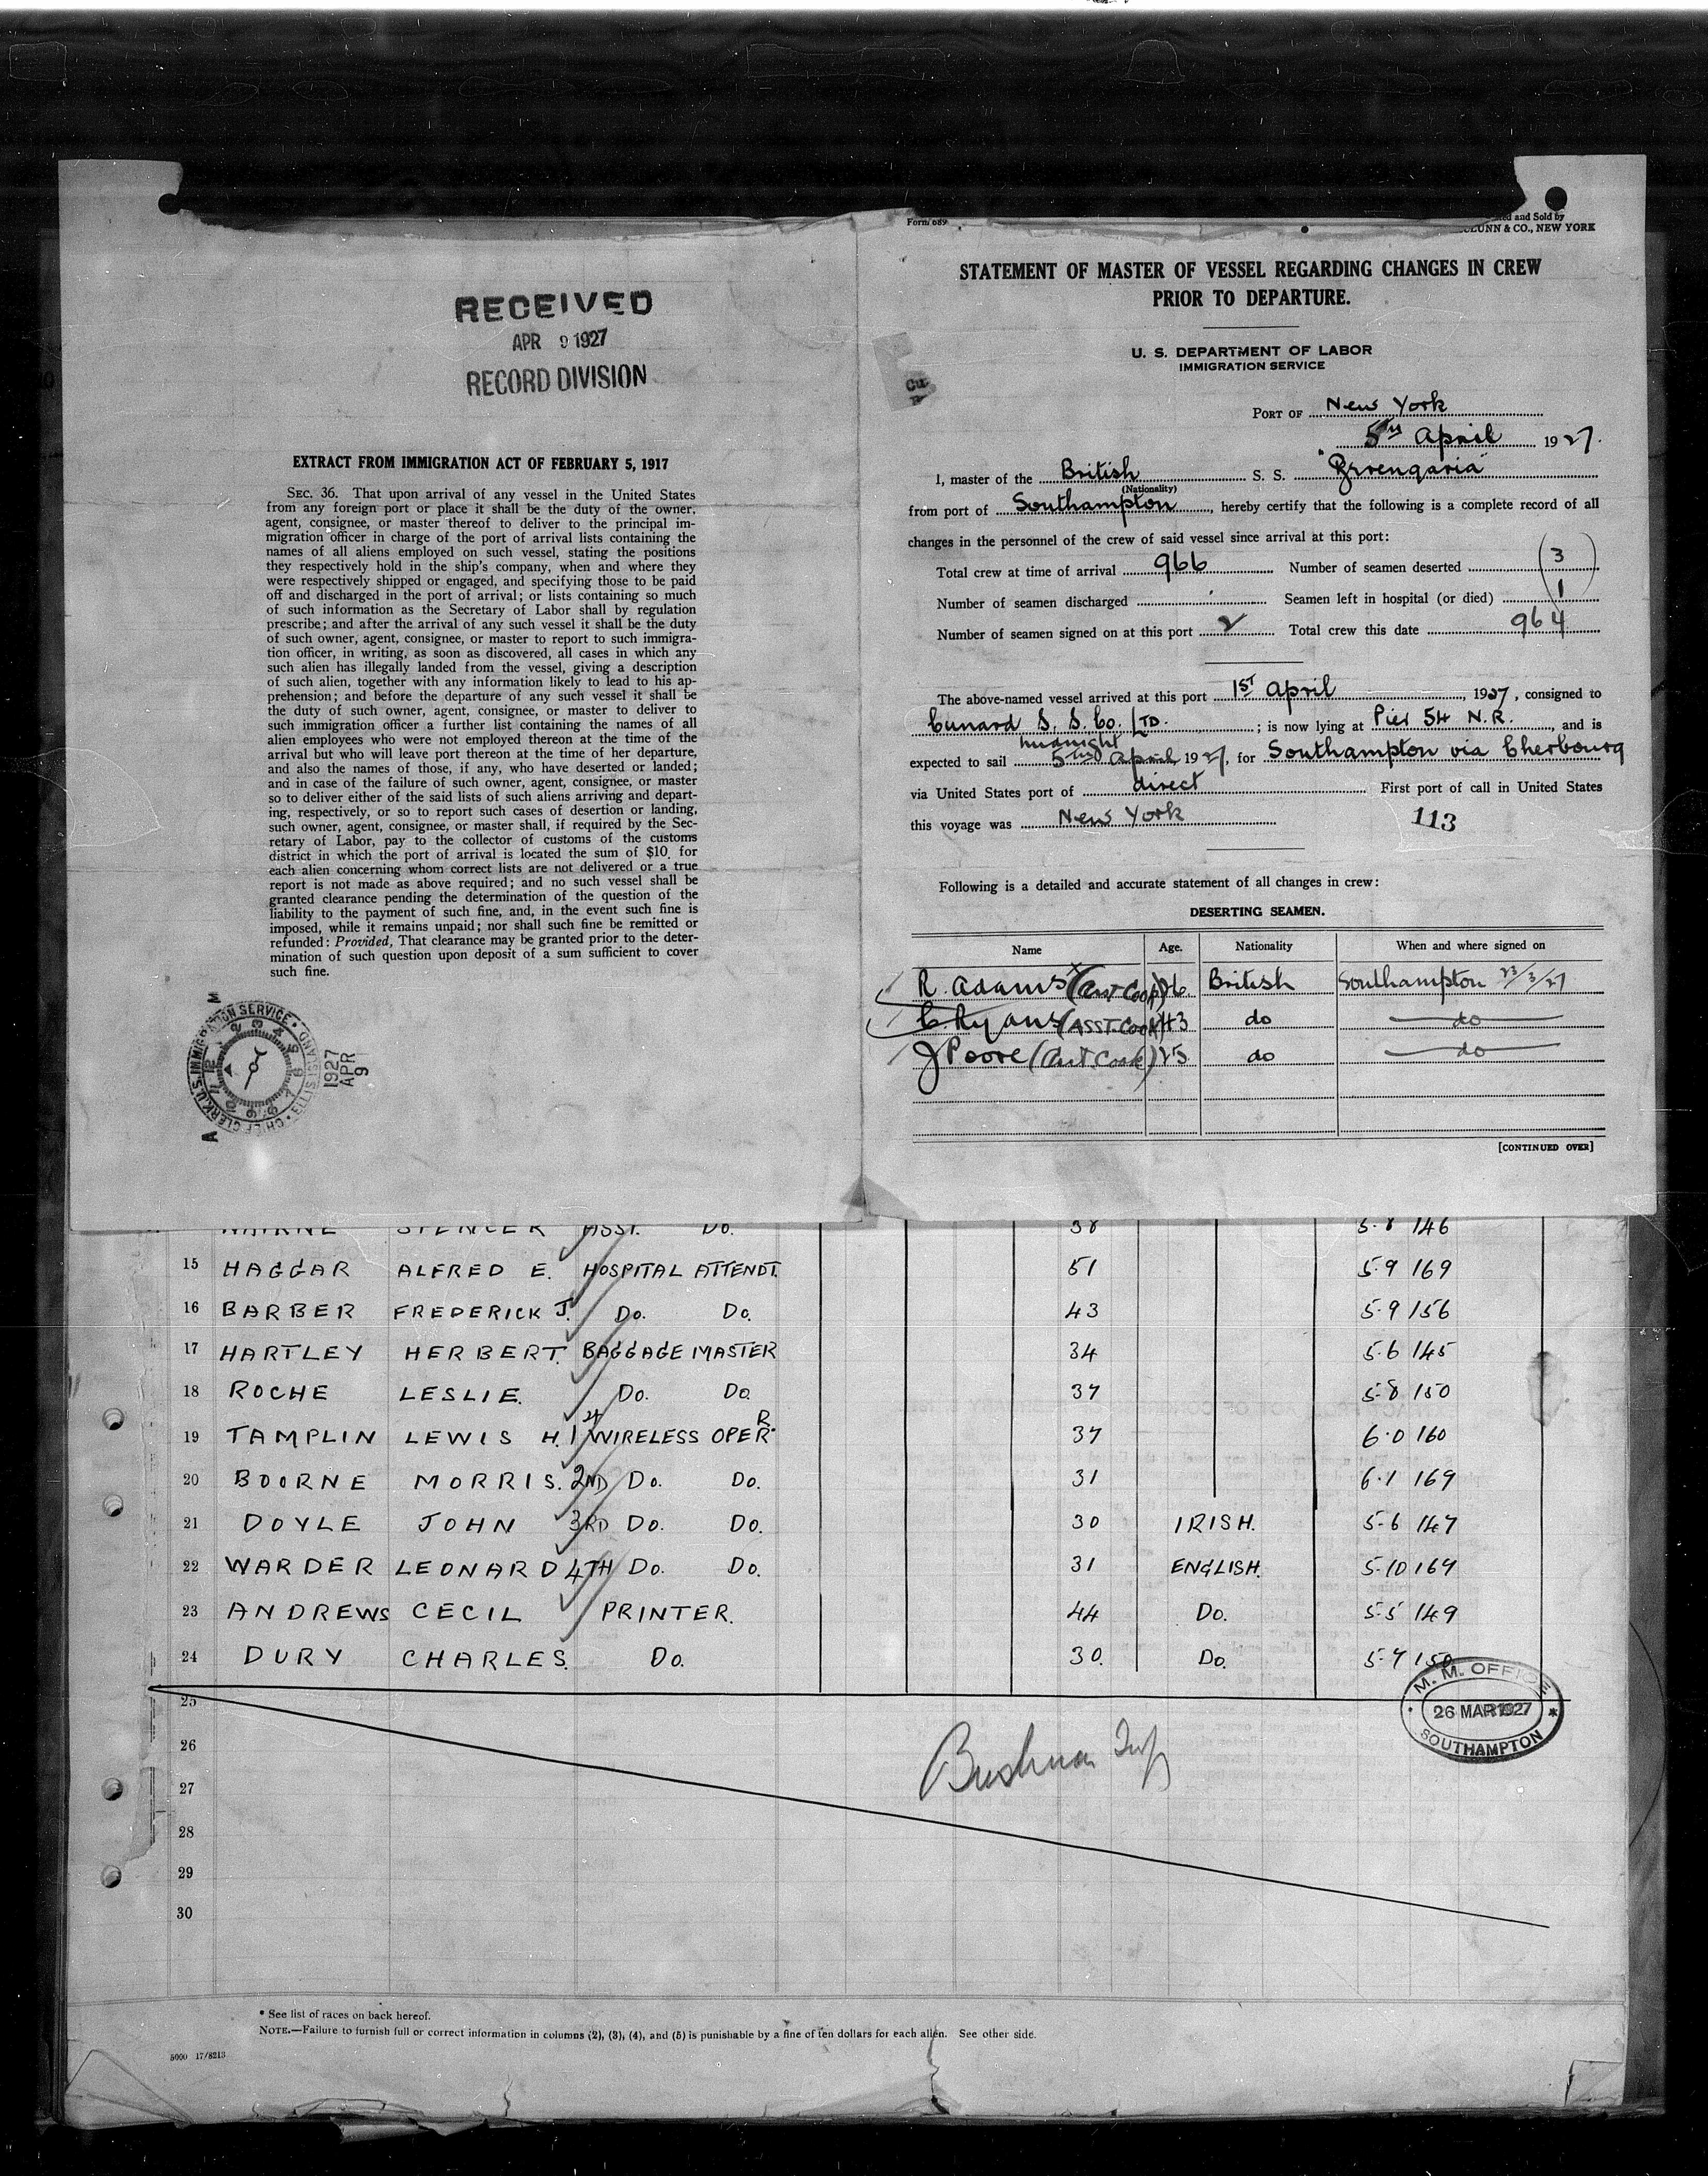 RECEIVED
APR 9 1927
RECORD DIVISION
EXTRACT FROM IMMIGRATION ACT OF FEBRUARY 5, 1917
SEC. 36. That upon arrival of any vessel in the United States
from any foreign port or place it shall be the duty of the owner,
agent, consignee, or master thereof to deliver to the principal im-
migration officer in charge of the port of arrival lists containing the
names of all aliens employed on such vessel, stating the positions
they respectively hold in the ship's company, when and where they
were respectively shipped or engaged, and specifying those to be paid
off and discharged in the port of arrival; or lists containing so much
of such information as the Secretary of Labor shall by regulation
prescribe; and after the arrival of any such vessel it shall be the duty
of such owner, agent, consignee, or master to report to such immigra-
tion officer, in writing, as soon as discovered, all cases in which any
such alien has illegally landed from the vessel, giving a description
of such alien, together with any information likely to lead to his ap-
prehension; and before the departure of any such vessel it shall be
the duty of such owner, agent, consignee, or master to deliver to
such immigration officer a further list containing the names of all
alien employees who were not employed thereon at the time of the
arrival but who will leave port thereon at the time of her departure,
and also the names of those, if any, who have deserted or landed;
and in case of the failure of such owner, agent, consignee, or master
so to deliver either of the said lists of such aliens arriving and depart-
ing, respectively, or so to report such cases of desertion or landing,
such owner, agent, consignee, or master shall, if required by the Sec-
retary of Labor, pay to the collector of customs of the customs
district in which the port of arrival is located the sum of $10 for
each alien concerning whom correct lists are not delivered or a true
report is not made as above required; and no such vessel shall be
granted clearance pending the determination of the question of the
liability to the payment of such fine, and, in the event such fine is
imposed, while it remains unpaid; nor shall such fine be remitted or
refunded: Provided, That clearance may be granted prior to the deter-
mination of such question upon deposit of a sum sufficient to cover
such fine.
CHIEF CLERK, U.S. IMMIGRATION SERVICE • ELLIS ISLAND
1927 APR 9
Form 689
and Sold by
& CO., NEW YORK
STATEMENT OF MASTER OF VESSEL REGARDING CHANGES IN CREW
PRIOR TO DEPARTURE.
U. S. DEPARTMENT OF LABOR
IMMIGRATION SERVICE
PORT OF New York
5th April 1927.
I, master of the British S. S. "Berengaria"
(Nationality)
from port of Southampton, hereby certify that the following is a complete record of all
changes in the personnel of the crew of said vessel since arrival at this port:
Total crew at time of arrival 966 Number of seamen deserted 3
Number of seamen discharged Seamen left in hospital (or died) 1
Number of seamen signed on at this port 2 Total crew this date 964
The above-named vessel arrived at this port 1ST April, 1927, consigned to
Cunard S. S. Co. LTD.; is now lying at Pier 54 N.R., and is
midnight
expected to sail 5th April 1927, for Southampton via Cherbourg
via United States port of direct First port of call in United States
this voyage was New York 113
Following is a detailed and accurate statement of all changes in crew:
DESERTING SEAMEN.
Name Age. Nationality When and where signed on
R. Adams (Asst Cook) 26 British Southampton 23/3/27
C. Ryans (ASST. Cook) 43 do do
J Poore (Asst. Cook) 25 do do
[CONTINUED OVER]
NAIRNE SPENCER ASST. DO. 38 5-8 146
15 HAGGAR ALFRED E. HOSPITAL ATTENDT. 51 5-9 169
16 BARBER FREDERICK J. DO. DO. 43 5-9 156
17 HARTLEY HERBERT. BAGGAGE MASTER 34 5-6 145
18 ROCHE LESLIE. DO. DO. 37 5-8 150
19 TAMPLIN LEWIS H. 1st WIRELESS OPER. 37 6-0 160
20 BOORNE MORRIS. 2ND DO. DO. 31 6-1 169
21 DOYLE JOHN 3RD DO. DO. 30 IRISH. 5-6 147
22 WARDER LEONARD 4TH DO. DO. 31 ENGLISH. 5-10 169
23 ANDREWS CECIL PRINTER. 44 DO. 5-5 149
24 DURY CHARLES. DO. 30. DO. 5-7 150
25
M. M. OFFICE
26 MAR 1927
SOUTHAMPTON
26
27
28
29
30
* See list of races on back hereof.
NOTE.—Failure to furnish full or correct information in columns (2), (3), (4), and (5) is punishable by a fine of ten dollars for each alien. See other side.
5000 17/8213